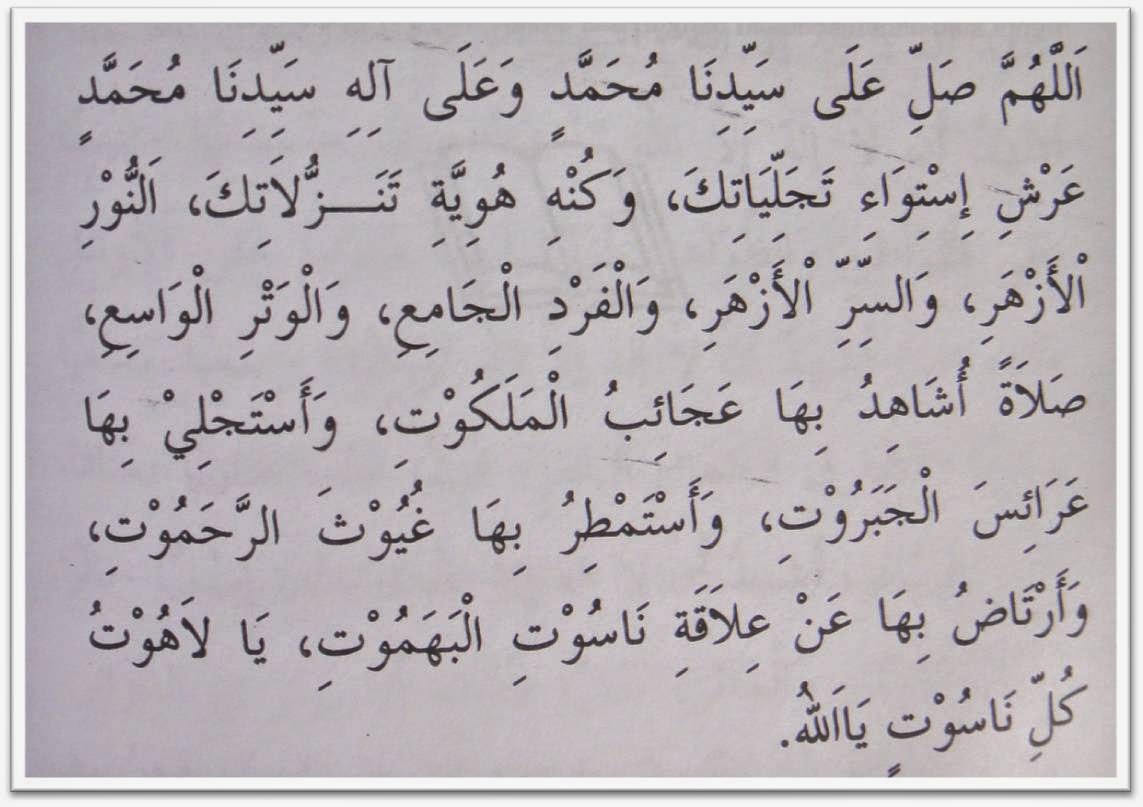 اَللَّهُمَّ صَلِّ عَلَى سَيِّدِنَا مُحَمَّدٍ وَعَلَى آلِهِ سَيِّدِنَا مُحَمَّدٍ
عَرْشِ إِسْتِوَاءِ تَجَلِّيَاتِكَ، وَكُنْهِ هُوِيَّةِ تَنَـــزُّلَاتِكَ، اَلنُّوْرِ
اْلأَزْهَرِ، وَالسِّرِّ اْلأَزْهَرِ، وَالْفَرْدِ الْجَامِعِ، وَالْوَتْرِ الْوَاسِعِ،
صَلاَةً أُشَاهِدُ بِهَا عَجَائِبُ الْمَلَكُوْتِ، وَأَسْتَجْلِيْ بِهَا
عَرَائِسَ الْجَبَرُوْتِ، وَأَسْتَمْطِرُ بِهَا غُيُوْثَ الرَّحَمُوْتِ،
وَأَرْتَاضُ بِهَا عَنْ عِلاَقَةِ نَاسُوْتِ الْبَهَمُوْتِ، يَا لاَهُوْتُ
كُلِّ نَاسُوْتٍ يَااَللهُ.